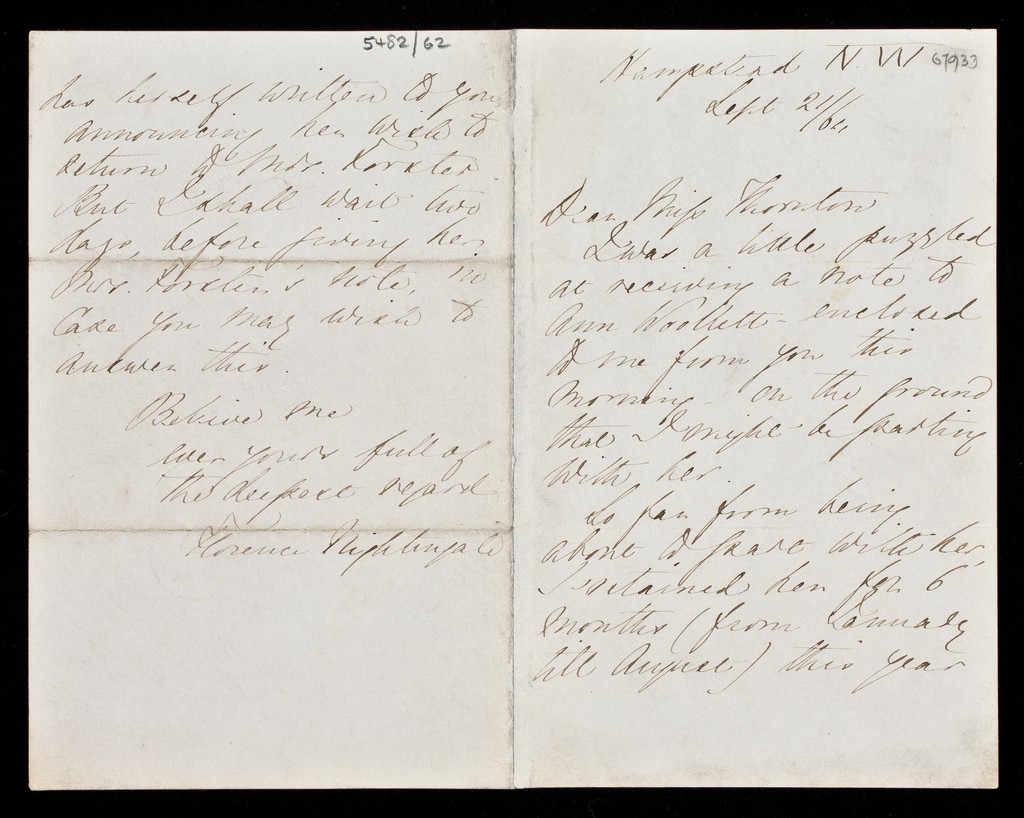 5482/62
67933
Hampstead N.W
Sept 21/64
Dear Miss Thornton
I was a little puzzled
at receiving a note to
Ann Woollett - enclosed
to me from you this
morning - on the ground
that I might be parting
with her.
So far from being
about to part with her,
I retained her for 6
months (from January
till August) this year
has herself written to you
announcing her wish to
return to Mrs. Forster
But I shall wait two
days, before giving her
Mrs. Forster's note, in
case you may wish to
answer this.
Believe me
ever yours full of
the deepest regard
Florence Nightingale